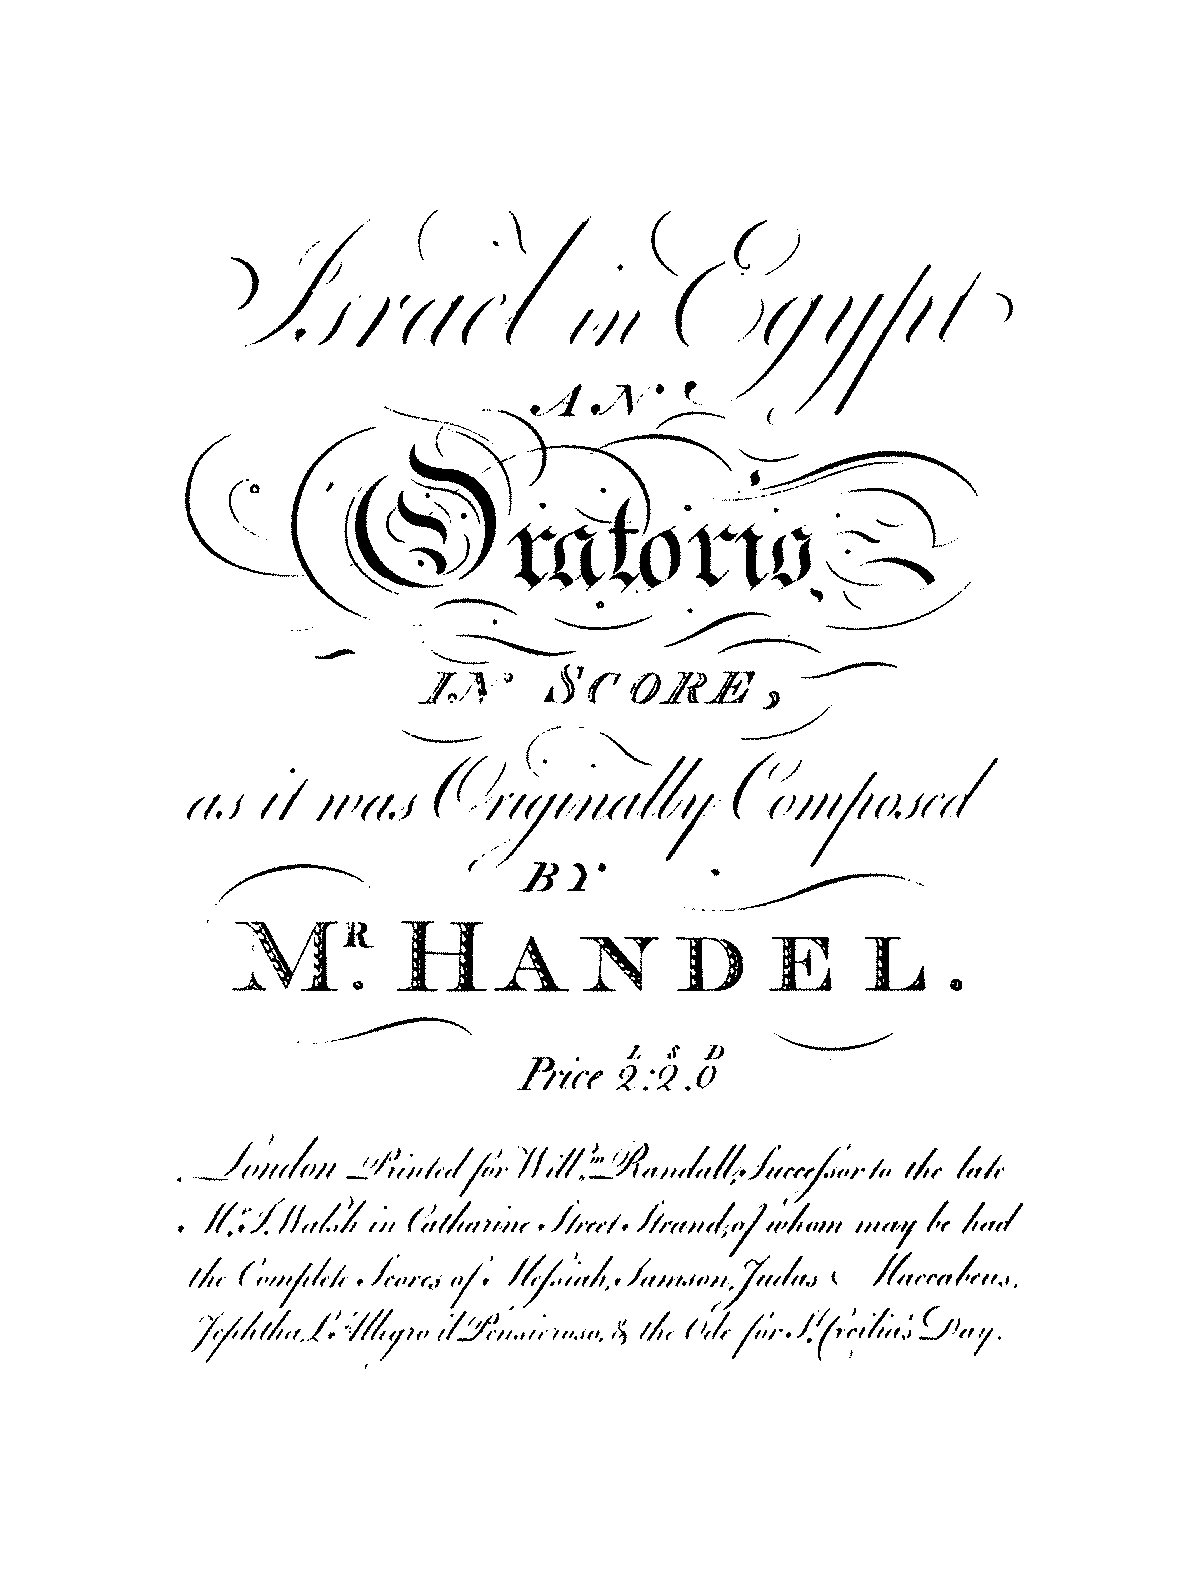 Israel in Egypt
AN
Oratorio
IN SCORE,
as it was Originally Composed
BY
MR. HANDEL.
L S D
Price 2:2.0
London Printed for Willm. Randall, Successor to the late
Mr. J. Walsh in Catharine Street Strand, of whom may be had
the Complete Scores of Messiah, Samson, Judas Maccabeus,
Jephtha, L'Allegro il Pensieroso, & the Ode for St. Cecilia's Day.